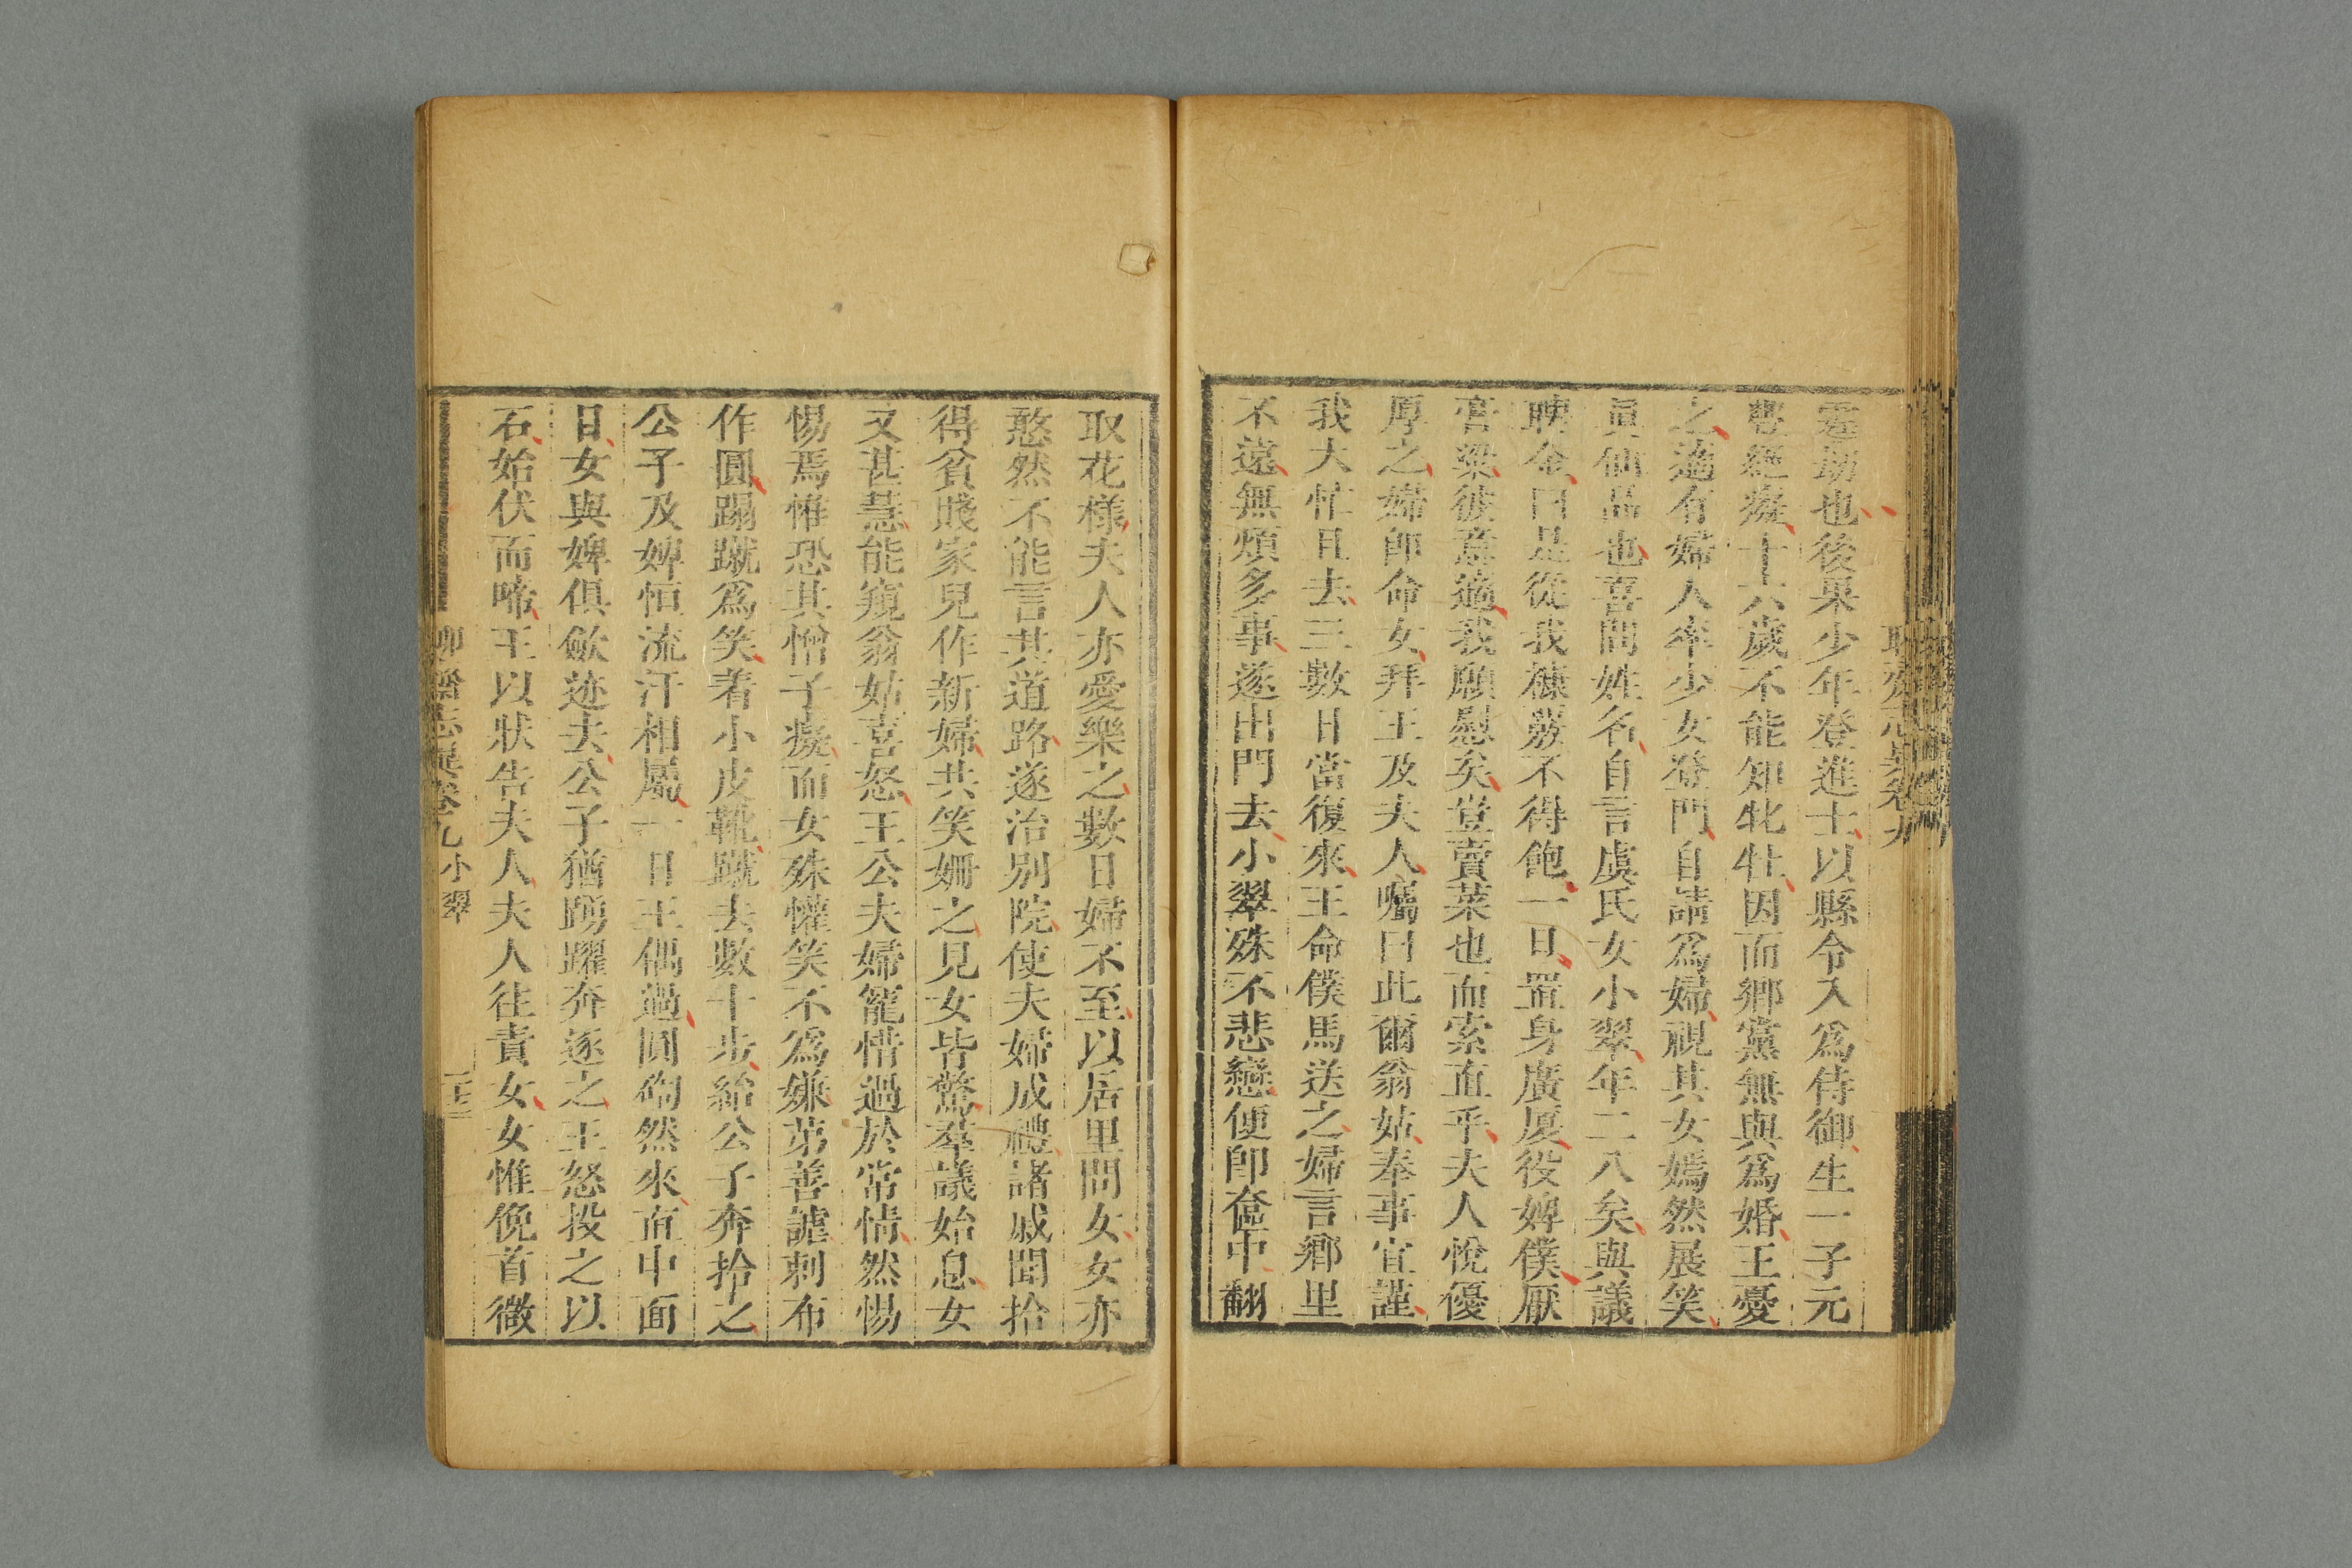 聊齋志異卷九
霆劫也後果少年登進士以縣令入爲侍御生一子元
豐絕癡十六歲不能知牝牡因而鄉黨無與爲婚王憂
之適有婦人率少女登門自請爲婦視其女嫣然展笑
眞仙品也喜問姓名自言虞氏女小翠年二八矣與議
聘金曰是從我糠覈不得飽一旦置身廣厦役婢僕厭
膏粱彼意適我願慰矣豈賣菜也而索直乎夫人悅優
厚之婦卽命女拜王及夫人囑曰此爾翁姑奉事宜謹
我大忙且去三數日當復來王命僕馬送之婦言鄉里
不遠無煩多事遂出門去小翠殊不悲戀便卽奩中翻
取花樣夫人亦愛樂之數日婦不至以居里問女女亦
憨然不能言其道路遂治別院使夫婦成禮諸戚聞拾
得貧賤家兒作新婦共笑姍之見女皆驚羣議始息女
又甚慧能窺翁姑喜怒王公夫婦寵惜過於常情然惕
惕焉惟恐其憎子癡而女殊懽笑不爲嫌第善謔刺布
作圓蹋蹴爲笑着小皮靴蹴去數十步紿公子奔拾之
公子及婢恒流汗相屬一日王偶過圓䃔然來直中面
目女與婢俱斂迹去公子猶踴躍奔逐之王怒投之以
石始伏而啼王以狀告夫人夫人往責女女惟俛首微
聊齋志異卷九 小翠